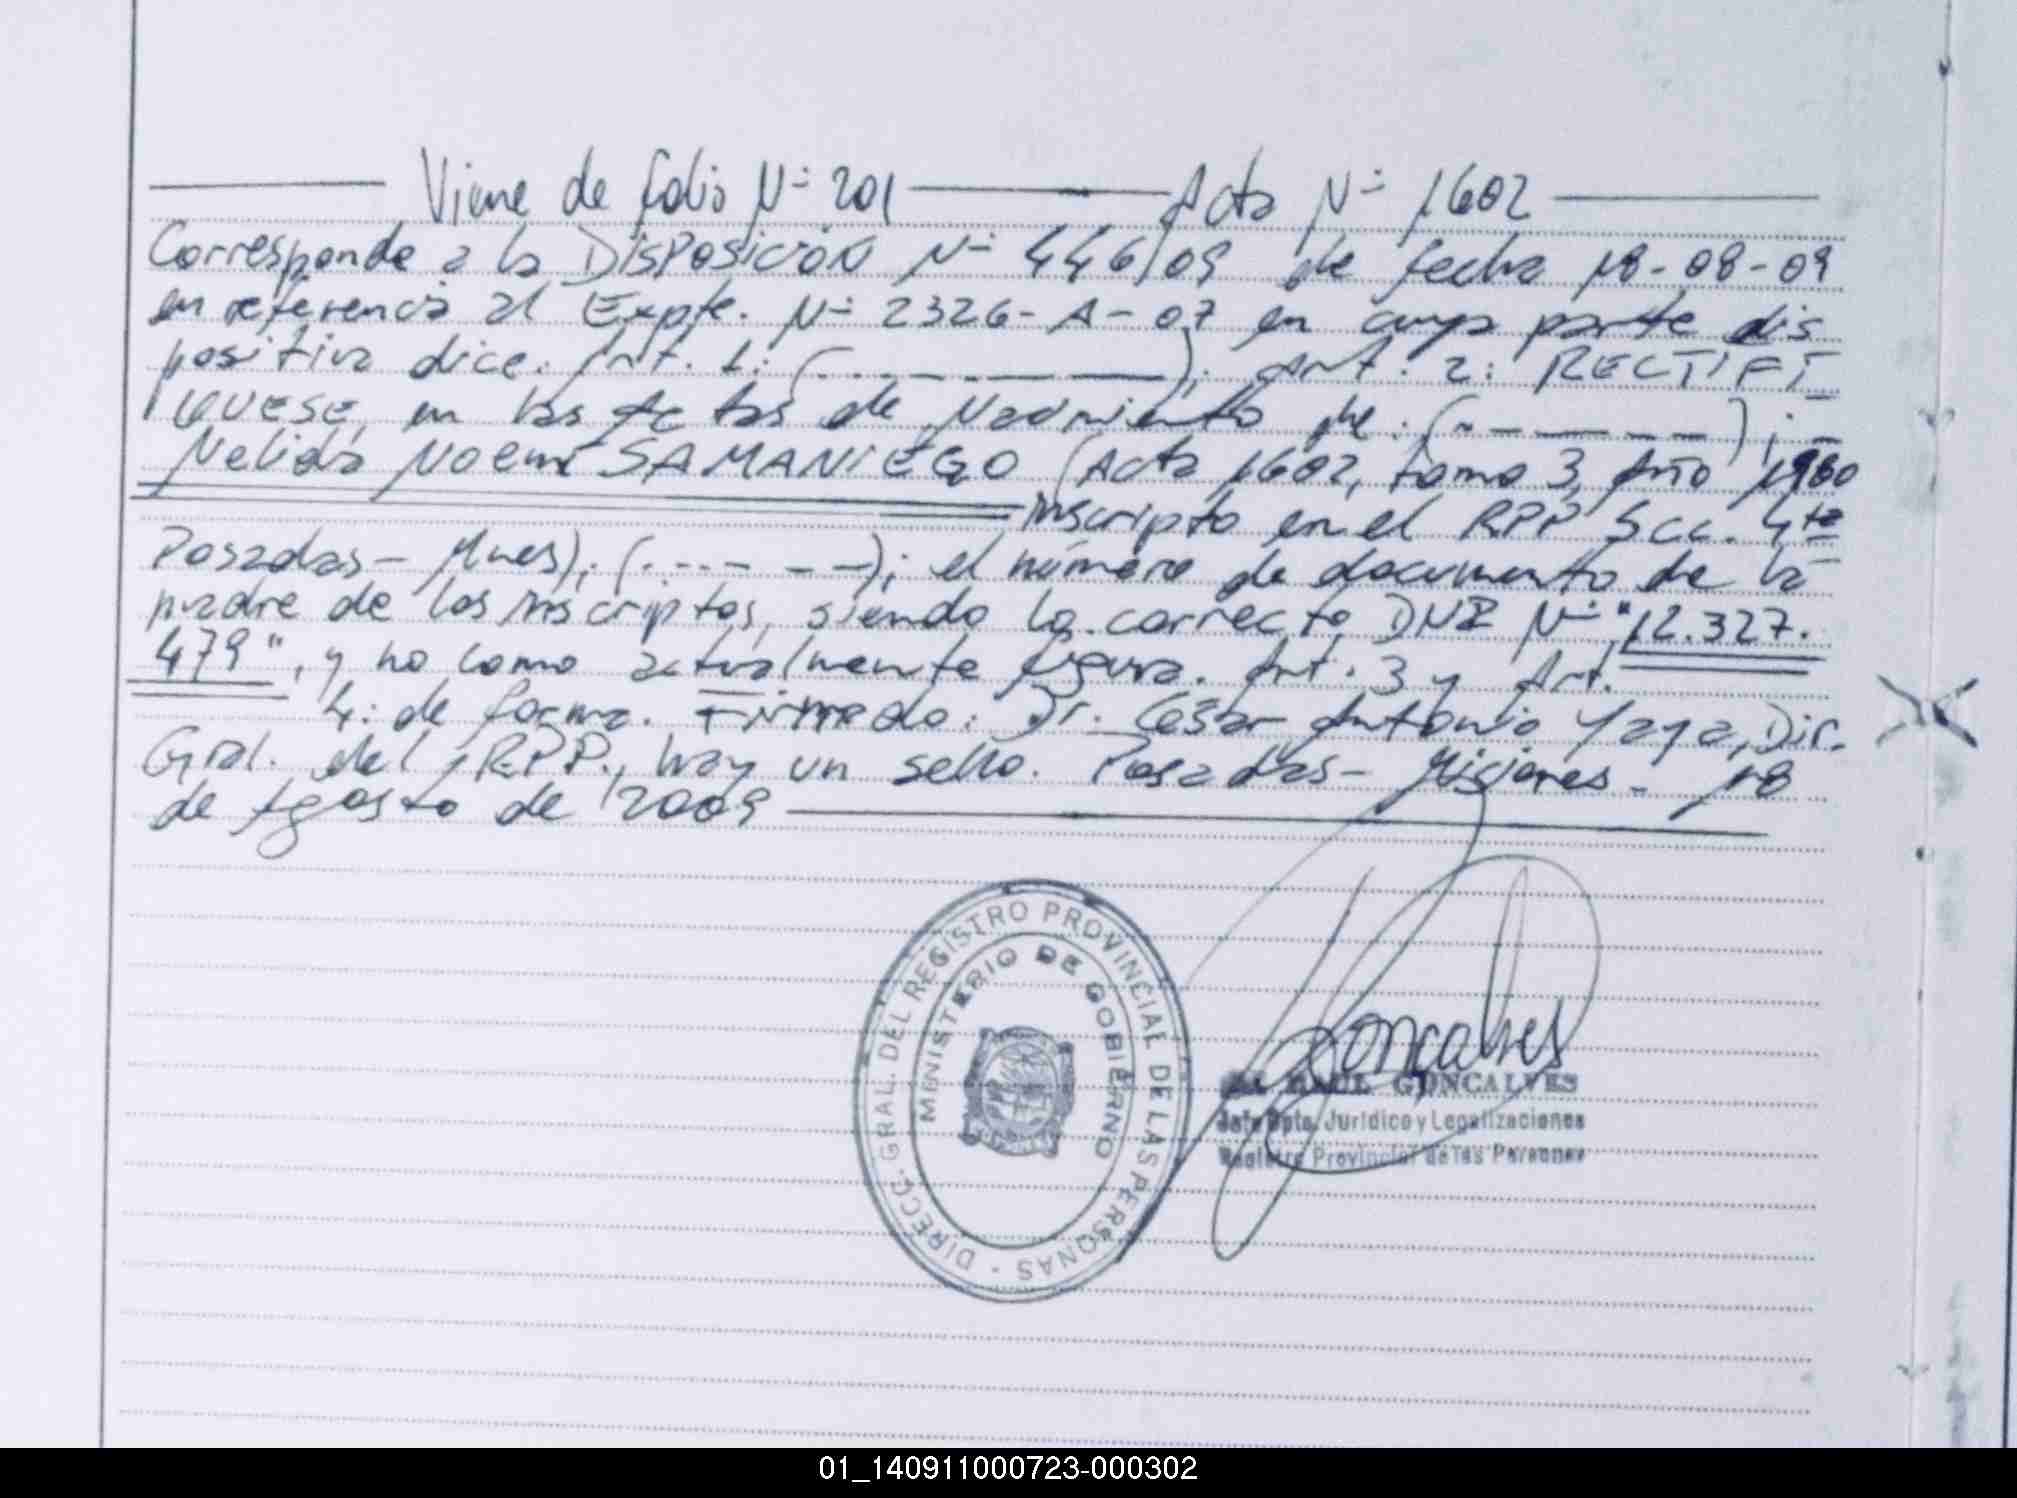 Viene de folio Nº 201 Acta Nº 1602
Corresponde a la Disposición Nº 446/09 de fecha 18-08-09
en referencia al Expte. Nº 2326-A-07 en cuya parte dis
positiva dice. Art. 1: (. _ _ _ _ _ _); Art. 2: RECTIFI
QUESE, en las Actas de Nacimiento de: (- - - - - -); -
Nelida Noemi SAMANIEGO (Acta 1602, tomo 3, Año 1980
inscripto en el RPP Scc. 4ta
Posadas - Mnes); (. - - - - - -); el número de documento de la
madre de los inscriptos, siendo lo correcto DNI Nº "12.327.
479", y no como actualmente figura. Art. 3 y Art.
4: de forma. Firmado: Dr. Cesar Antonio Yaya, Dir.
Gral. del RPP., hay un sello. Posadas - Misiones - 18
de Agosto de 2009
DIRECC. GRAL. DEL REGISTRO PROVINCIAL DE LAS PERSONAS
MINISTERIO DE GOBIERNO
Goncalves
RAUL GONCALVES
Jefe Dpto. Jurídico y Legalizaciones
Registro Provincial de las Personas
01_140911000723-000302